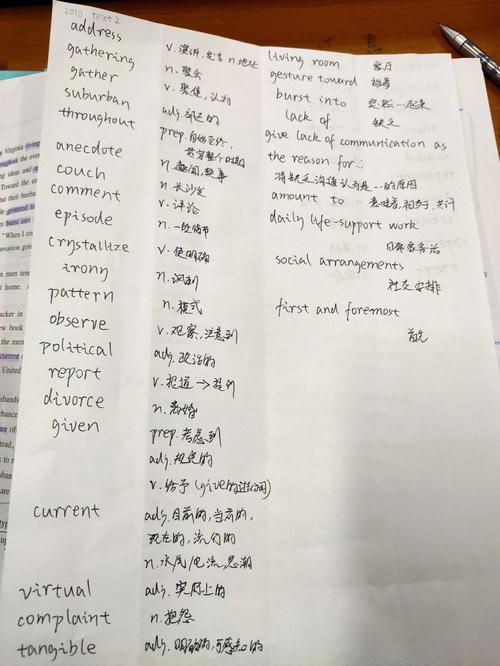 2010. text2
address v. 演讲,处告 n. 地址
gathering n. 聚会
gather v. 聚集,认为
suburban adj. 郊区的
throughout prep. 自始至终,
贯穿整个时期
anecdote n. 趣闻,轶事
couch n. 长沙发
comment v. 评论
episode n. 一段情节
crystallize v. 使明确
irony n. 讽刺
pattern n. 模式
observe v. 观察,注意到
political adj. 政治的
report v. 报道→提到
divorce n. 离婚
given prep. 考虑到
adj. 规定的
v. 给予(give的过去分词)
current adj. 目前的,当前的,
现在的,流行的
n. 水流/电流,思潮
virtual adj. 实际上的
complaint n. 抱怨
tangible adj. 明确的,可感知的
living room 客厅
gesture toward 指着
burst into 突然…起来
lack of 缺乏
give lack of communication as
the reason for...
将缺乏沟通认为是…的原因
amount to 意味着,相当于,共计
daily life-support work
日常家务活
social arrangements
社交安排
first and foremost
首先
Virginia living
ideas and
Toward the e
that their husba
burst into
"When I c
home. A
new book
current d
United